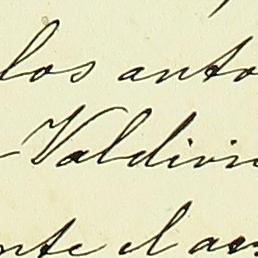 los anto
Valdivi
nte el a